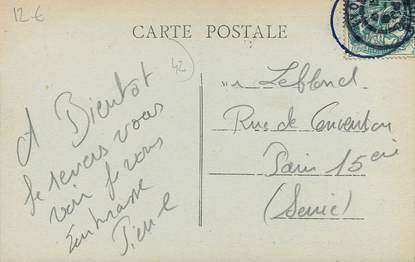 12 €
CARTE POSTALE
42
A Bientot
Je reviens vous
voir je vous
Embrasse
Pierre
Leblond
Rue de Convention
Paris 15 eme
(Seine)